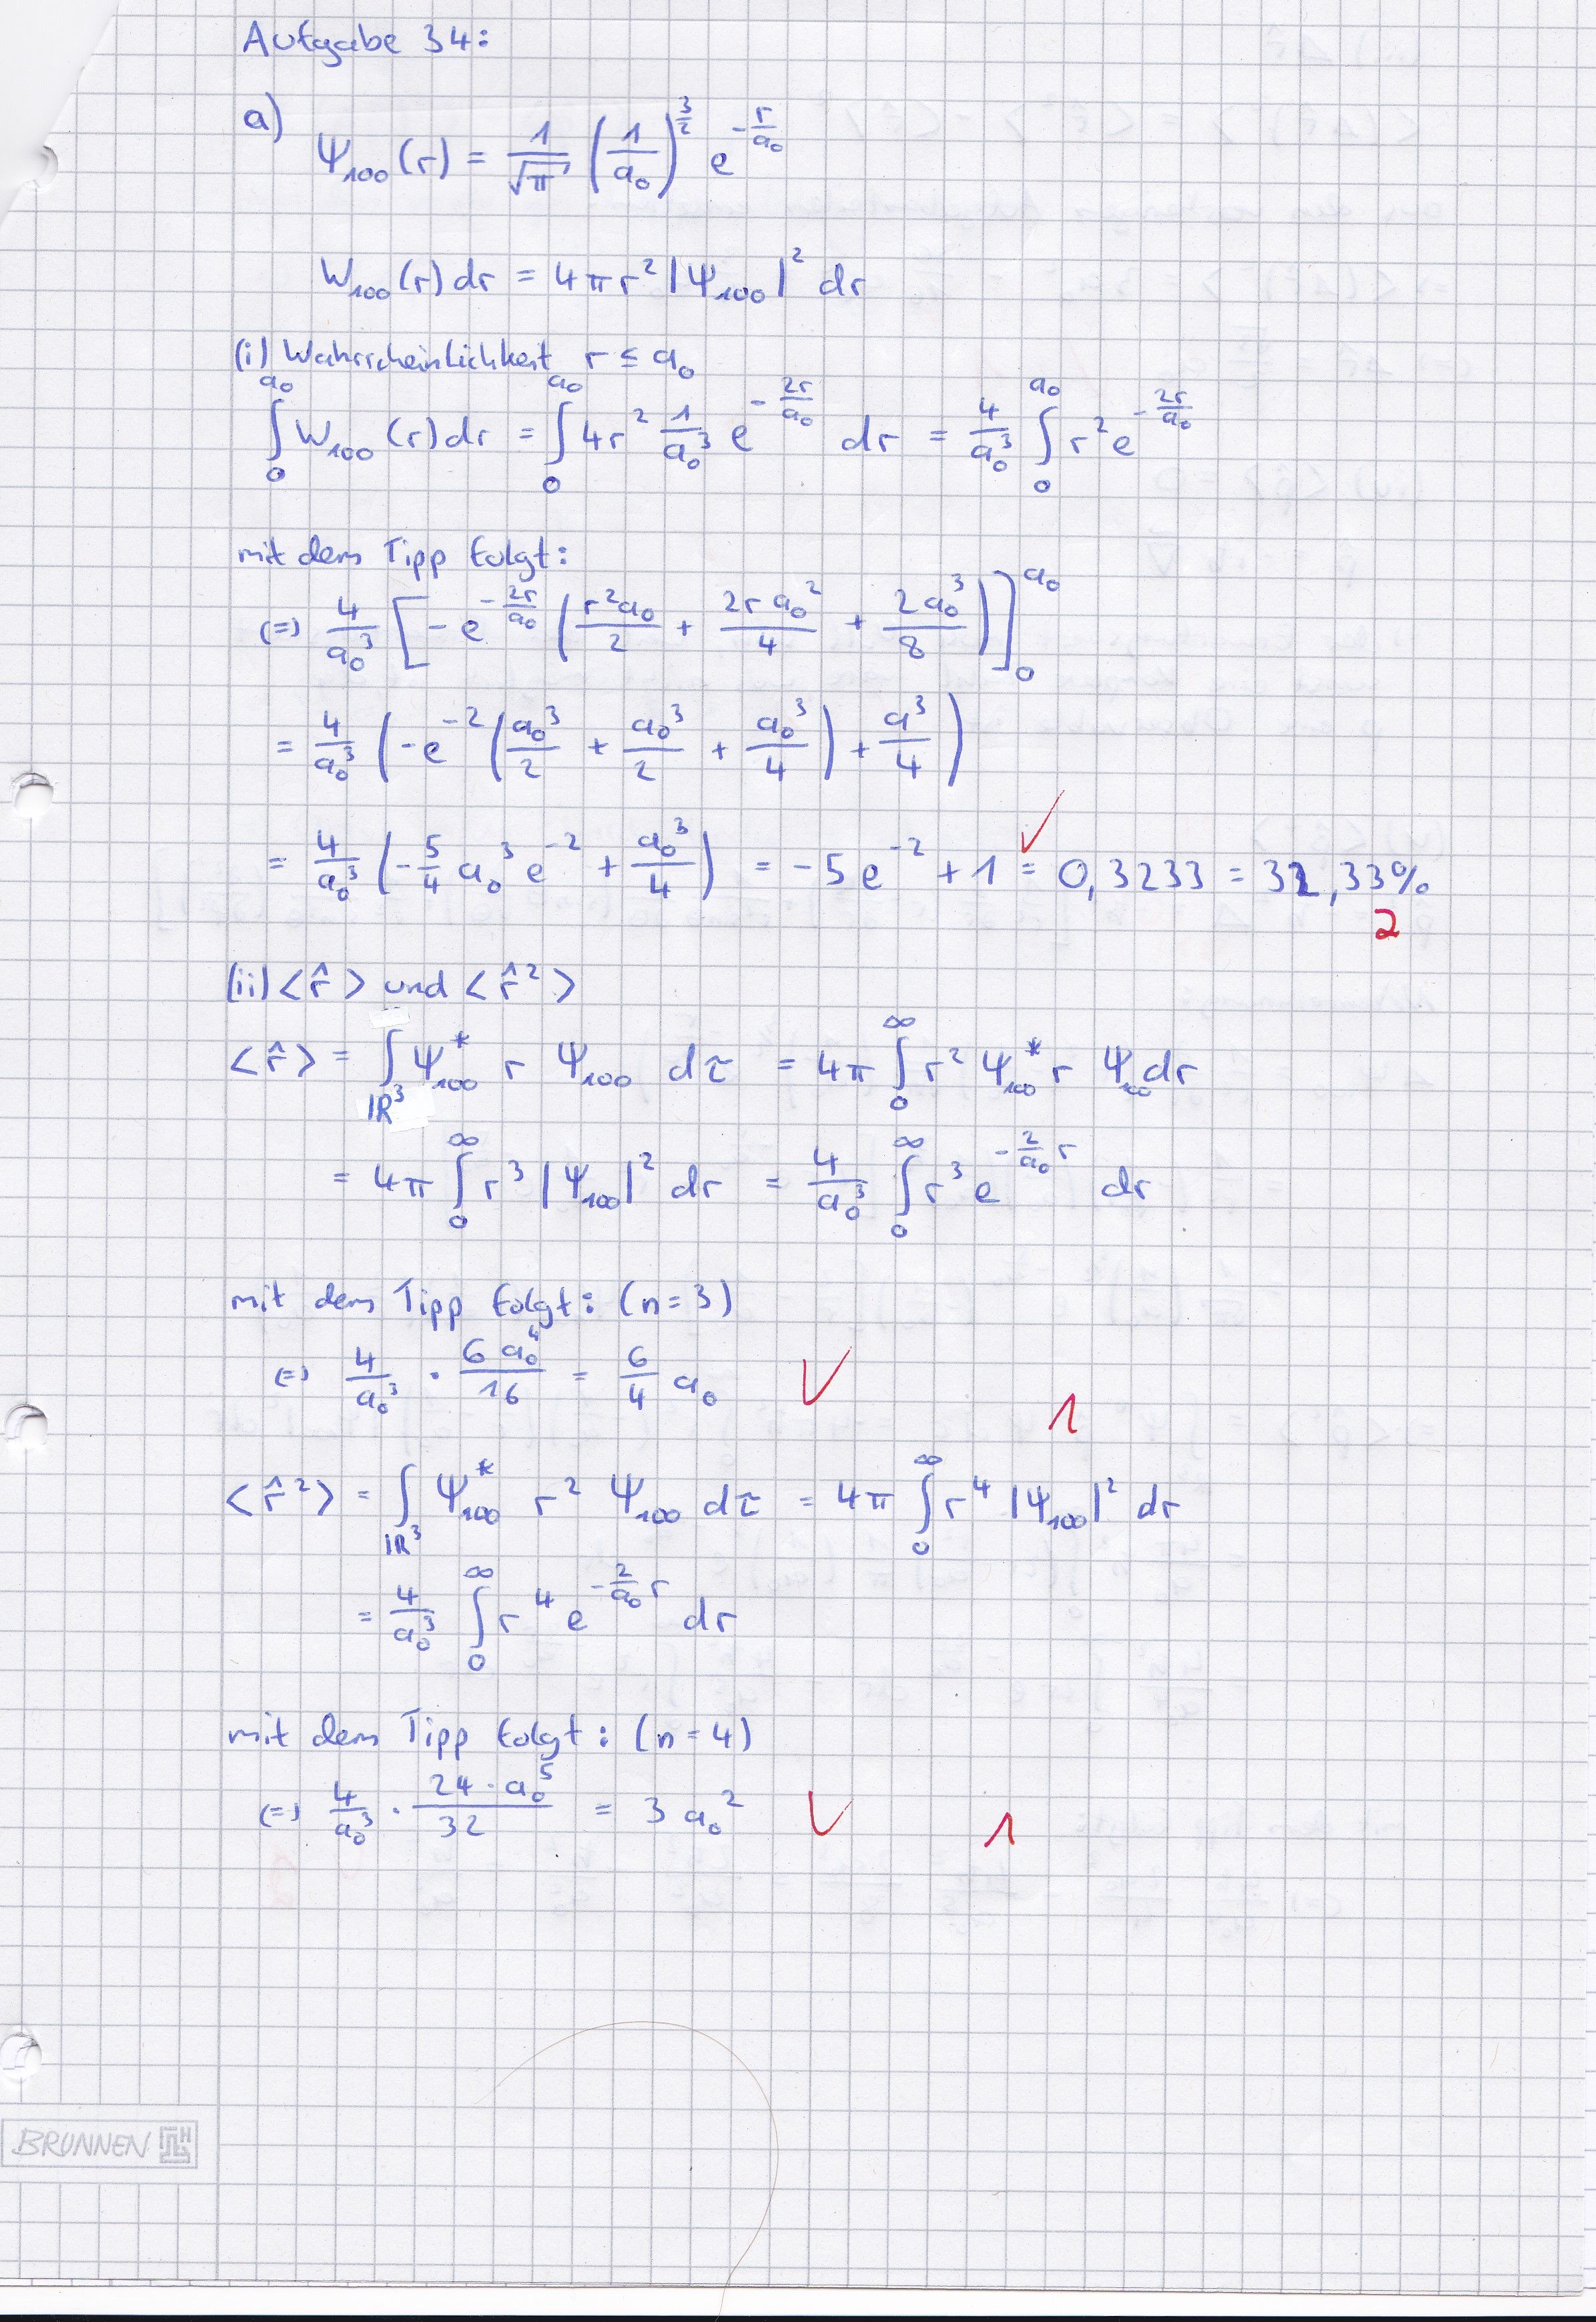 Aufgabe 34:
a) Ψ₁₀₀(r) = 1/√π (1/a₀)^(3/2) e^(-r/a₀)
W₁₀₀(r) dr = 4πr² |Ψ₁₀₀|² dr
(i) Wahrscheinlichkeit r ≤ a₀
∫₀^(a₀) W₁₀₀(r) dr = ∫₀^(a₀) 4r² 1/a₀³ e^(-2r/a₀) dr = 4/a₀³ ∫₀^(a₀) r² e^(-2r/a₀)
mit dem Tipp folgt:
(=) 4/a₀³ [-e^(-2r/a₀) (r²a₀/2 + 2ra₀²/4 + 2a₀³/8)]₀^(a₀)
= 4/a₀³ (-e^(-2) (a₀³/2 + a₀³/2 + a₀³/4) + a³/4)
= 4/a₀³ (-5/4 a₀³ e^(-2) + a₀³/4) = -5e^(-2) + 1 = 0,3233 = 32,33% ✓
2
(ii) <r̂> und <r̂²>
<r̂> = ∫_ℝ³ Ψ*₁₀₀ r Ψ₁₀₀ dτ = 4π ∫₀^∞ r² Ψ*₁₀₀ r Ψ₁₀₀ dr
= 4π ∫₀^∞ r³ |Ψ₁₀₀|² dr = 4/a₀³ ∫₀^∞ r³ e^(-2/a₀ r) dr
mit dem Tipp folgt: (n=3)
(=) 4/a₀³ · 6a₀⁴/16 = 6/4 a₀ ✓ 1
<r̂²> = ∫_ℝ³ Ψ*₁₀₀ r² Ψ₁₀₀ dτ = 4π ∫₀^∞ r⁴ |Ψ₁₀₀|² dr
= 4/a₀³ ∫₀^∞ r⁴ e^(-2/a₀ r) dr
mit dem Tipp folgt: (n=4)
(=) 4/a₀³ · 24·a₀⁵/32 = 3a₀² ✓ 1
BRUNNEN